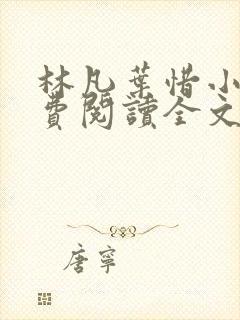 林凡葉惜小
費閱讀全文
唐寧